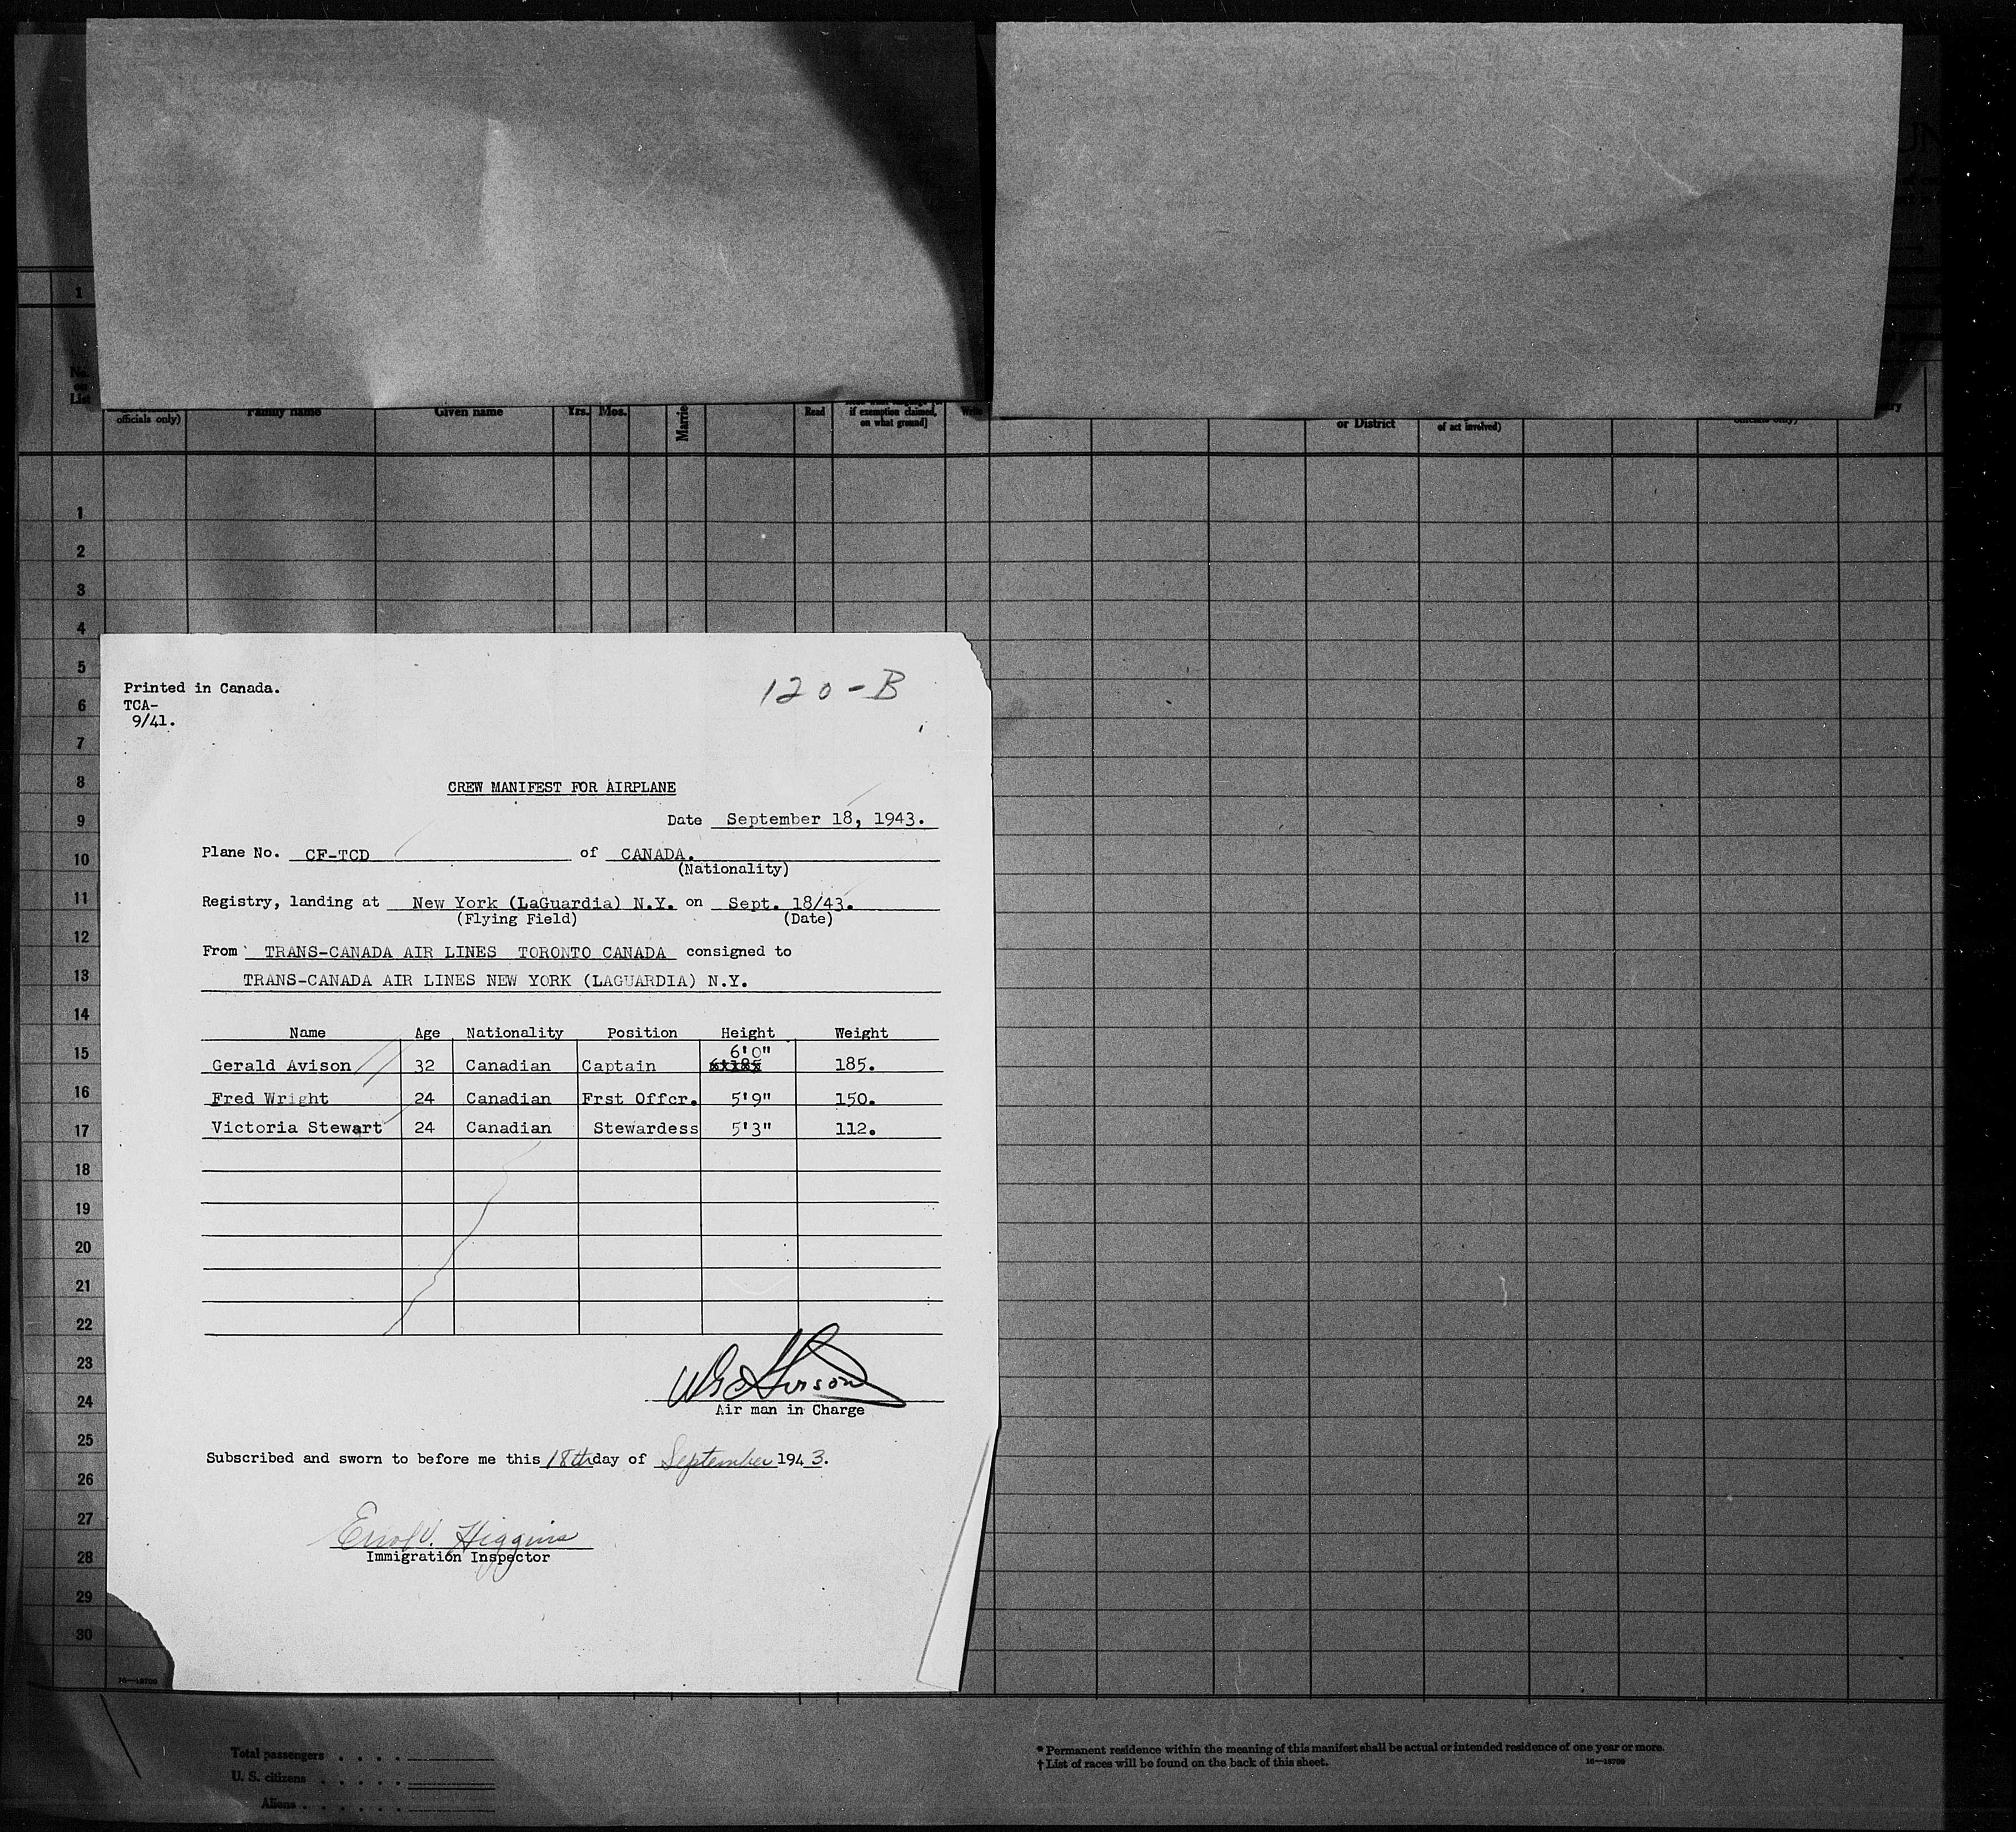 1
No.
on
List
officials only) Family name Given name Yrs. Mos. Married Read if exemption claimed, Write
on what ground]
or District of act involved) officials only)
1
2
3
4
5
6
7
8
9
10
11
12
13
14
15
16
17
18
19
20
21
22
23
24
25
26
27
28
29
30
120-B
Printed in Canada.
TCA-
9/41.
CREW MANIFEST FOR AIRPLANE
Date September 18, 1943.
Plane No. CF-TCD of CANADA.
(Nationality)
Registry, landing at New York (LaGuardia) N.Y. on Sept. 18/43.
(Flying Field) (Date)
From TRANS-CANADA AIR LINES TORONTO CANADA consigned to
TRANS-CANADA AIR LINES NEW YORK (LAGUARDIA) N.Y.
Name Age Nationality Position Height Weight
6'0"
Gerald Avison 32 Canadian Captain 185.
Fred Wright 24 Canadian Frst Offcr. 5'9" 150.
Victoria Stewart 24 Canadian Stewardess 5'3" 112.
Air man in Charge
Subscribed and sworn to before me this 18th day of September 1943.
Errol V. Higgins
Immigration Inspector
16—18709
Total passengers . . . .
U. S. citizens . . . . .
Aliens . . . . . .
* Permanent residence within the meaning of this manifest shall be actual or intended residence of one year or more.
† List of races will be found on the back of this sheet. 16—18709